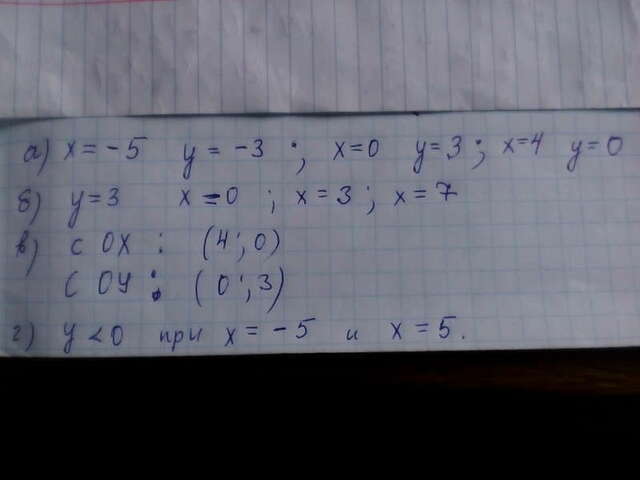 а) x = -5 y = -3 ; x=0 y=3 ; x=4 y=0
б) y=3 x=0 ; x=3 ; x=7
в) с OX : (4; 0)
с OY : (0; 3)
г) y < 0 при x = -5 и x = 5.